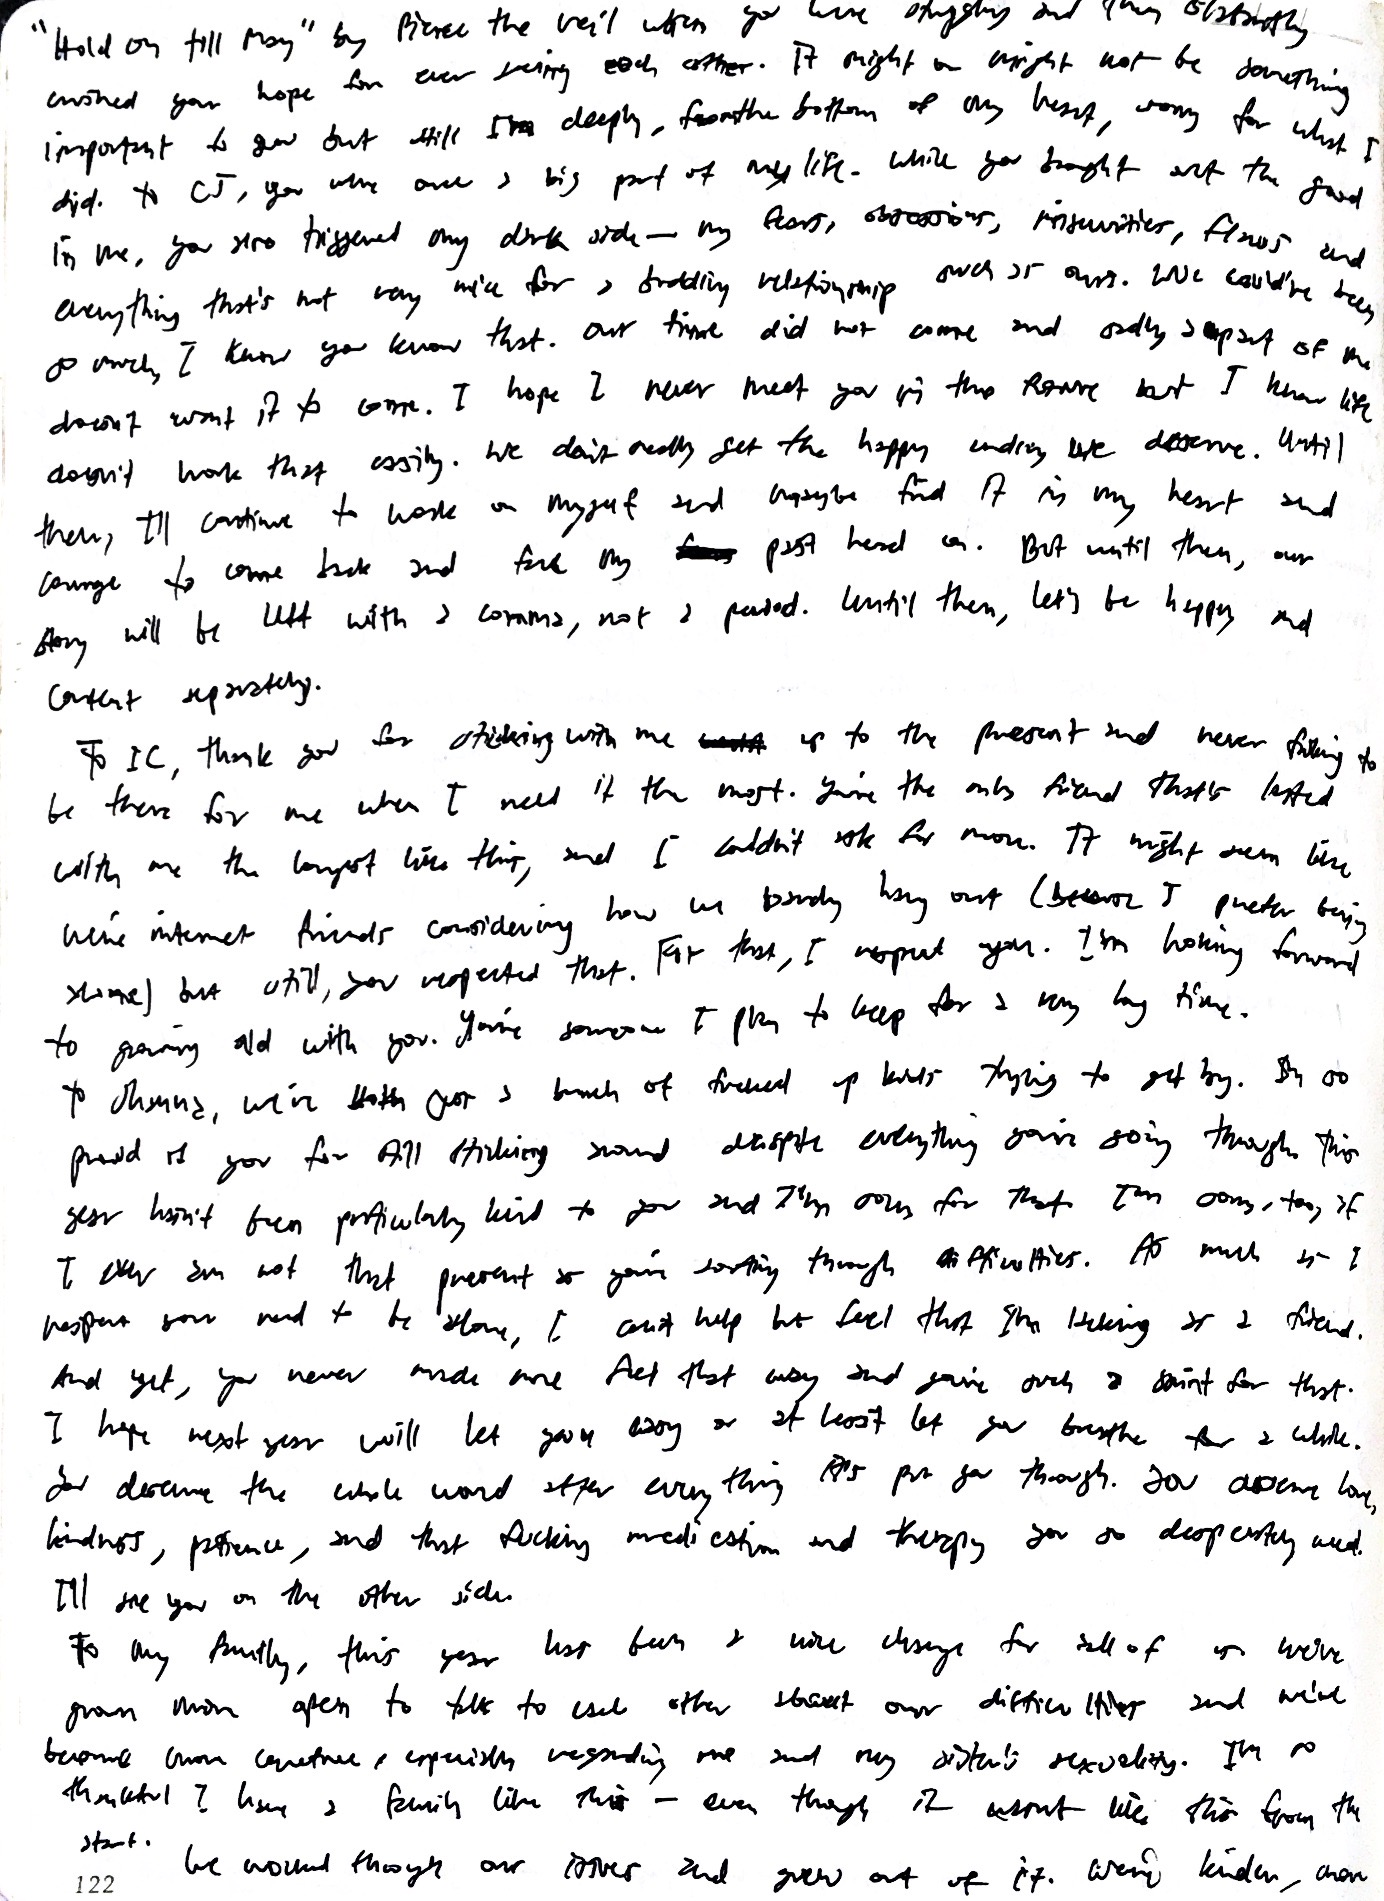 "Hold on till May" by Pierce the Veil when you were struggling and then
crushed your hope for ever seeing each other. It might or might not be something
important to you but still I'm deeply, from the bottom of my heart, sorry for what I
did. To CJ, you were once a big part of my life. While you brought out the good
in me, you also triggered my dark side — my fears, obsessions, insecurities, flaws and
everything that's not very nice for a budding relationship such as ours. We could've been
so much, I know you know that. Our time did not come and sadly a part of me
doesn't want it to come. I hope I never meet you in the future but I know life
doesn't work that easily. We don't really get the happy ending we deserve. Until
then, I'll continue to work on myself and maybe find it in my heart and
courage to come back and face my past head on. But until then, our
story will be left with a comma, not a period. Until then, let's be happy and
content separately.
To IC, thank you for sticking with me up to the present and never failing to
be there for me when I need it the most. You're the only friend that's lasted
with me the longest like this, and I couldn't ask for more. It might seem like
we're internet friends considering how we barely hang out (because I prefer being
alone) but still, you respected that. For that, I respect you. I'm looking forward
to growing old with you. You're someone I plan to keep for a very long time.
To we're just a bunch of fucked up kids trying to get by. I'm so
proud of you for still sticking around despite everything you're going through. This
year hasn't been particularly kind to you and I'm sorry for that. I'm sorry, too, if
I ever am not that present as you're sorting through difficulties. As much as I
respect your need to be alone, I can't help but feel that I'm lacking as a friend.
And yet, you never made me feel that way and you're such a saint for that.
I hope next year will let you easy or at least let you breathe for a while.
You deserve the whole world after everything it's put you through. You deserve love,
kindness, patience, and that fucking medication and therapy you so desperately need.
I'll see you on the other side.
To my family, this year has been a nice change for all of us. We've
grown more open to talk to each other about our difficulties and we've
become more, especially regarding me and my sister's sexuality. I'm so
thankful I have a family like this — even though it wasn't like this from the
start. We worked through our issues and grew out of it. We're kinder, more
122